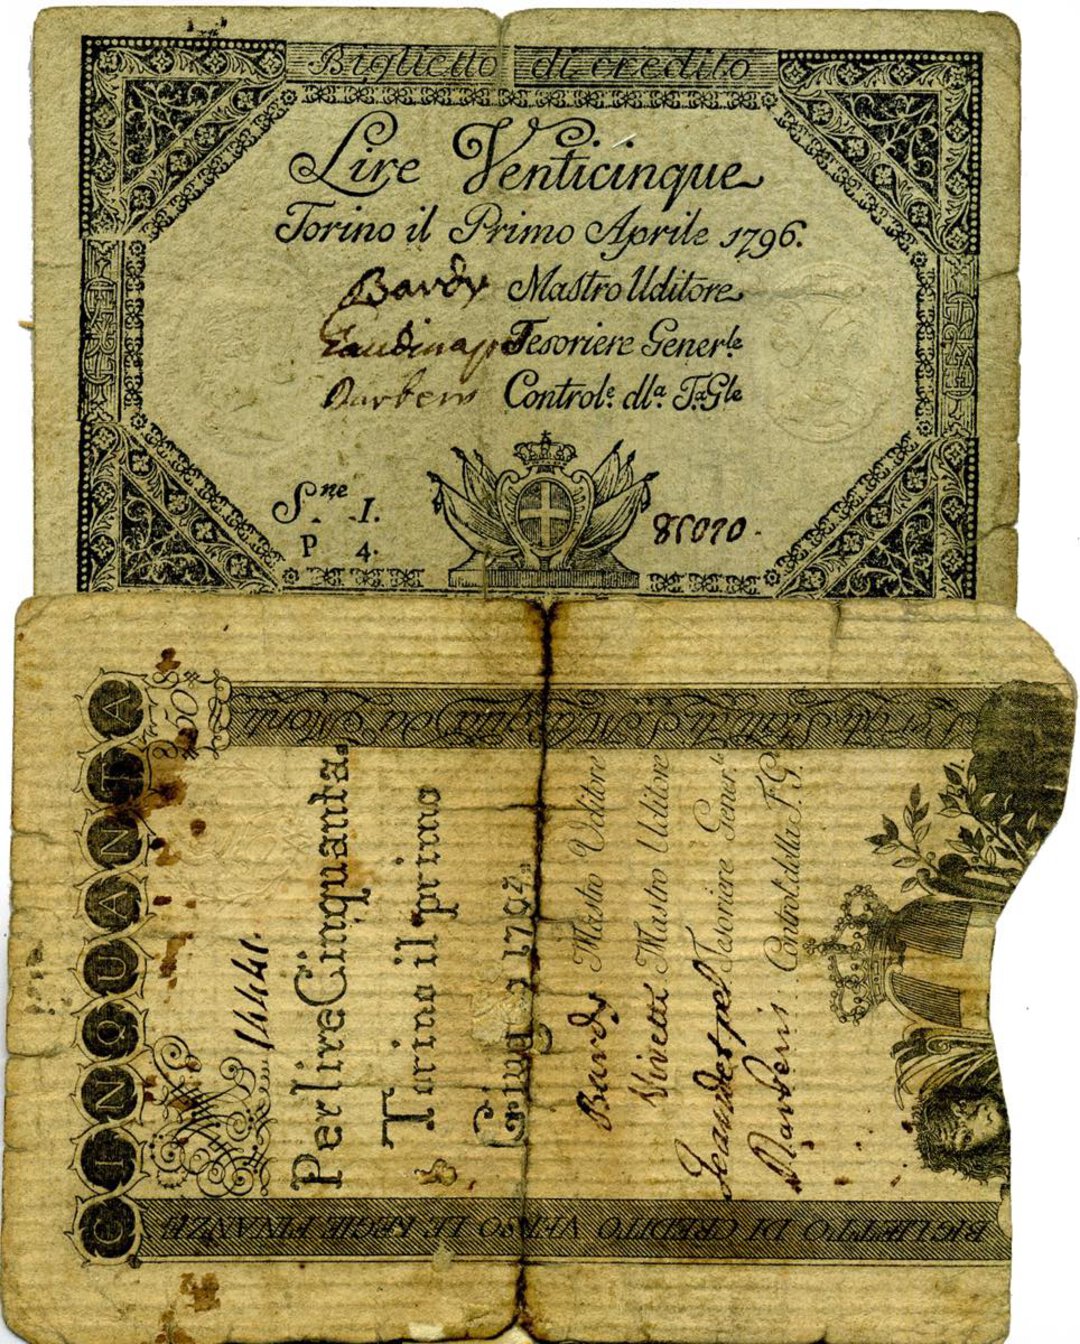 Biglietto di credito
Lire Venticinque
Torino il Primo Aprile 1796.
Bardy Mastro Uditore
Tesoriere Gener.le
Control.e dl.a T.a G.le
S.ne I.
P 4.
85070.
CINQUANTA
14441.
Per lire Cinquanta
Torino il primo
Bardy Mastro Uditore
Vivetti Mastro Uditore
Tesoriere Gener.le
Control. della T. G.
BIGLIETTO DI CREDITO VERSO LE REGIE FINANZE